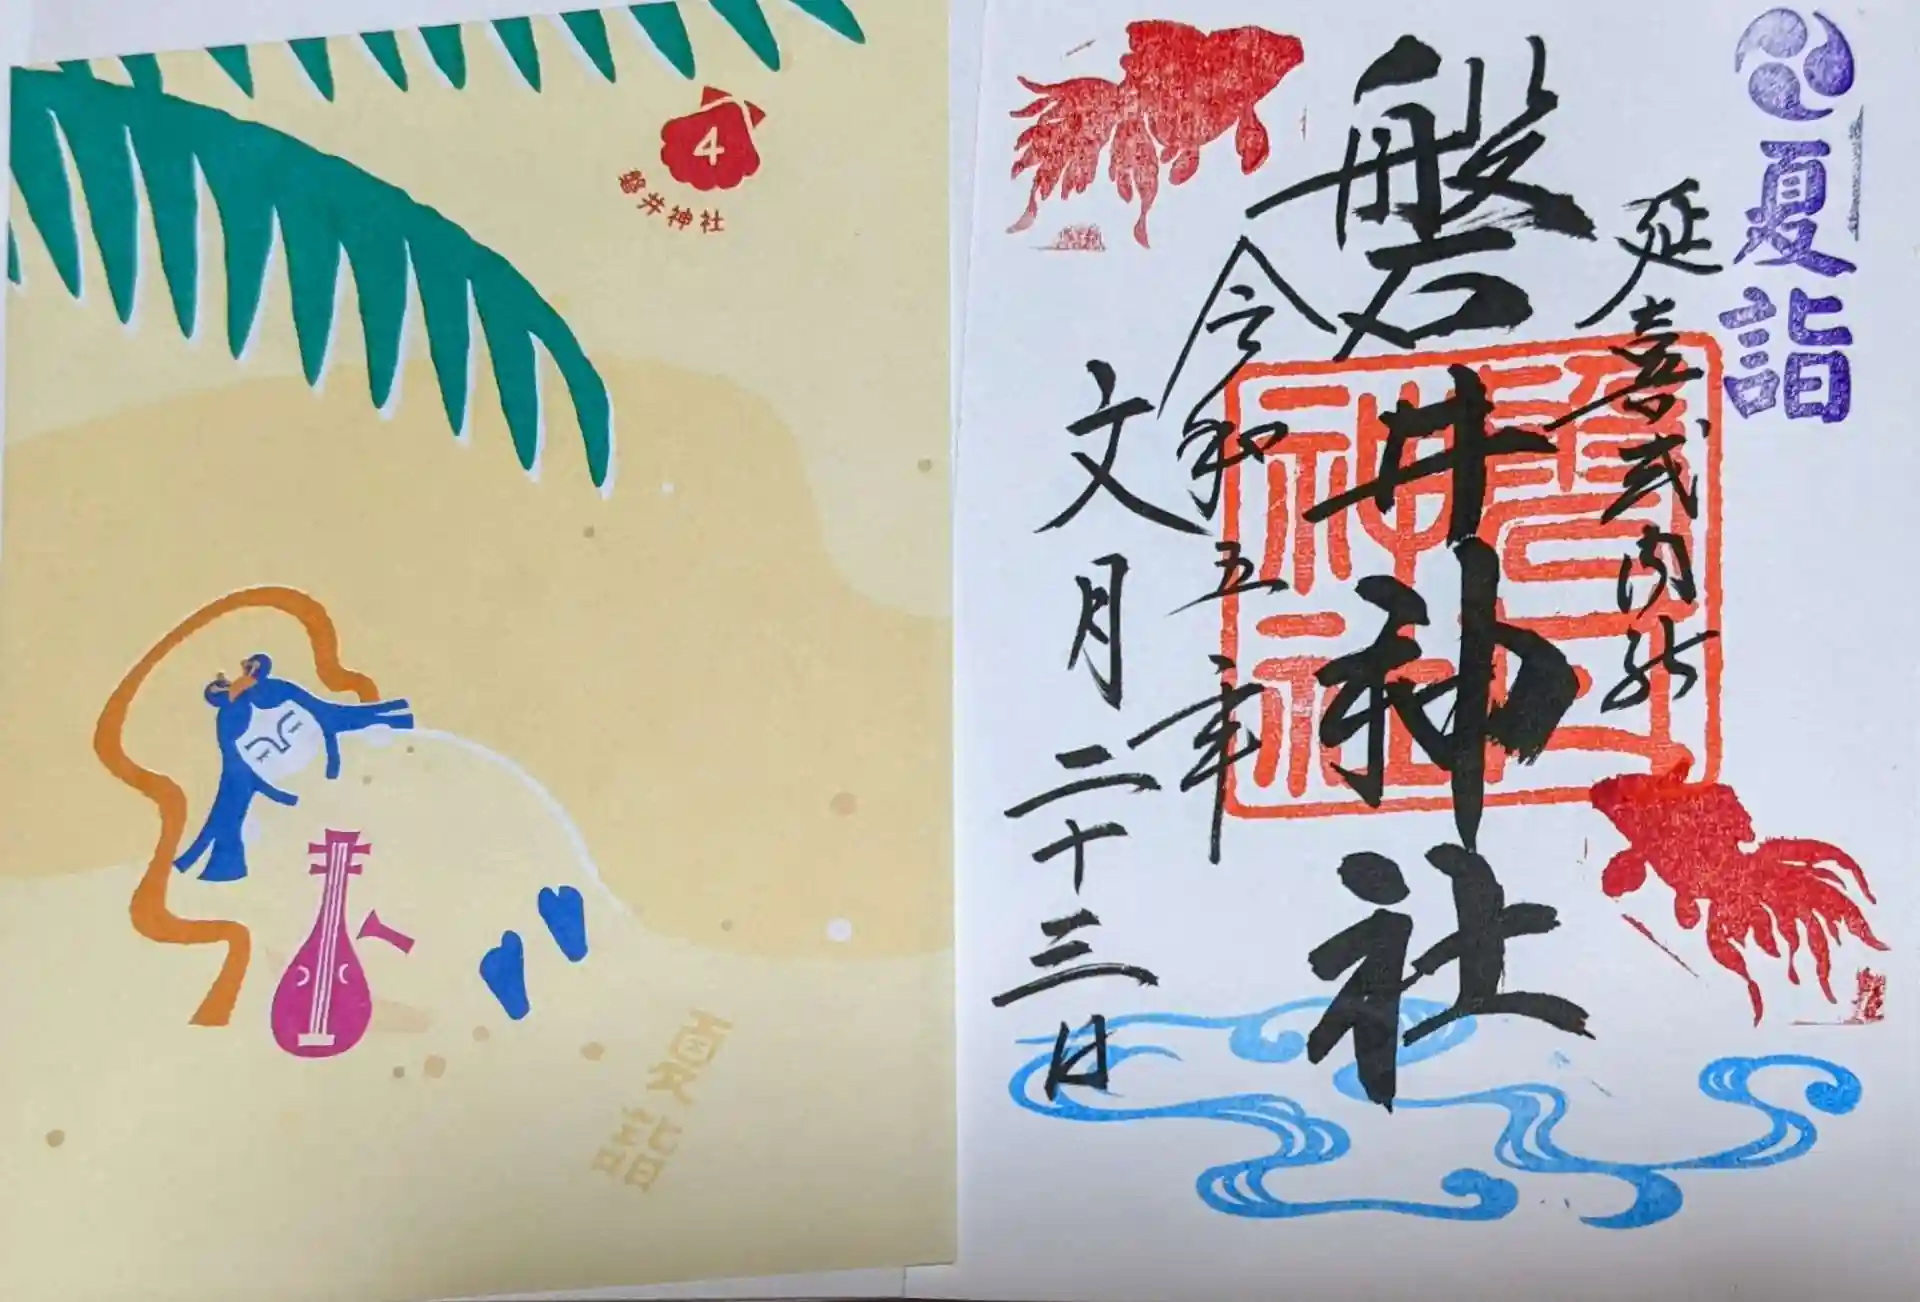 4
磐井神社
夏詣
夏詣
延喜式内社
磐井神社
令和五年
文月二十三日